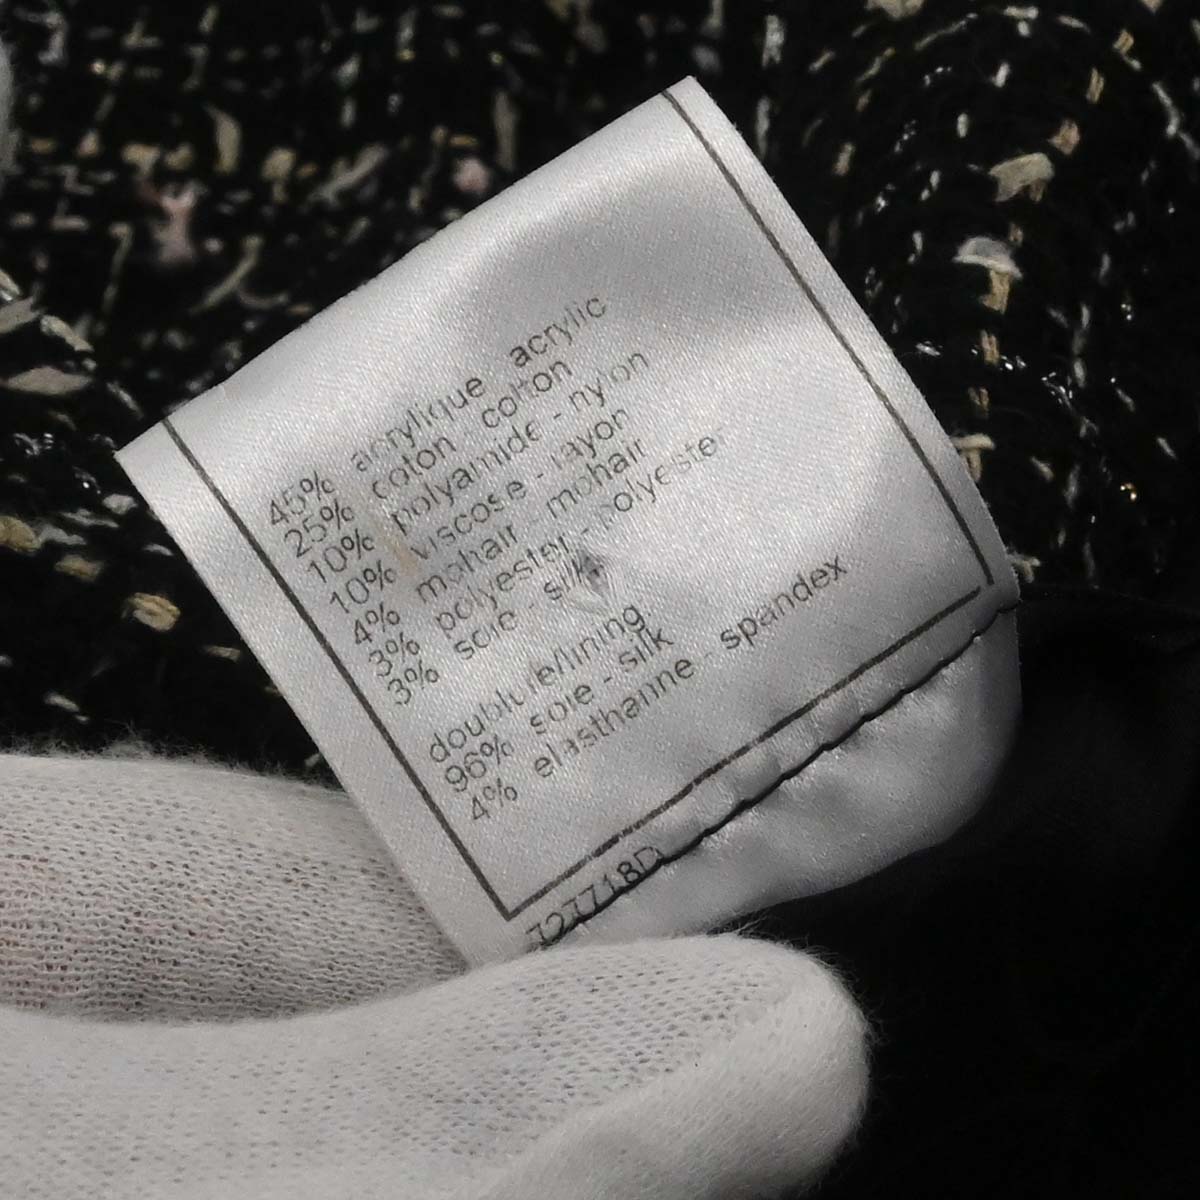 45% acrylique acrylic
25% coton - cotton
10% polyamide - nylon
10% viscose - rayon
4% mohair - mohair
3% polyester - polyester
3% soie - silk
doublure/lining:
96% soie - silk
4% elasthanne - spandex